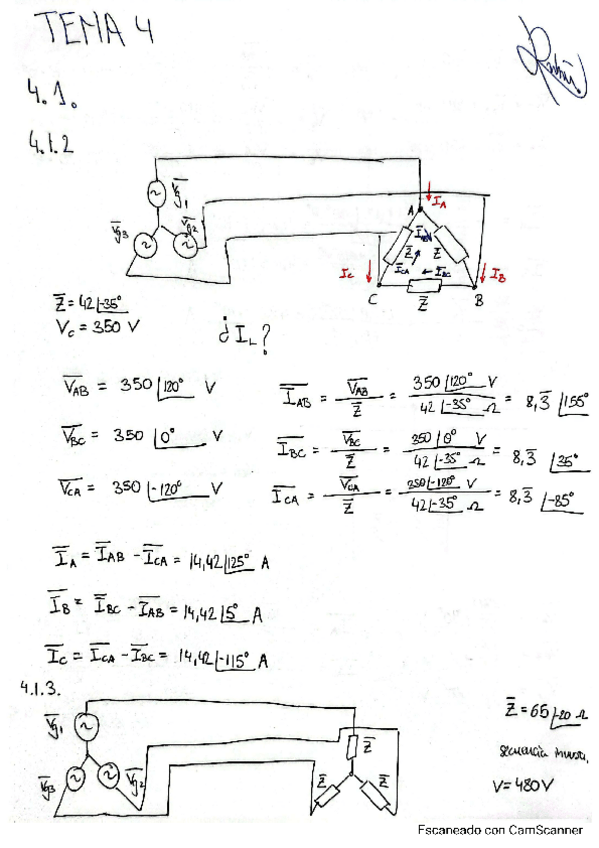 TEMA 4
4.1.
4.1.2
V̅g₁
V̅g₂
V̅g₃
A
I̅A
I̅AB
Z̅
Z̅
I̅CA
I̅BC
IC
IB
C
Z̅
B
Z̅ = 42∠-35°
VC = 350 V
¿IL?
V̅AB = 350∠120° V
I̅AB = V̅AB / Z̅ = 350∠120° V / 42∠-35° Ω = 8,3̅ ∠155°
V̅BC = 350∠0° V
I̅BC = V̅BC / Z̅ = 350∠0° V / 42∠-35° Ω = 8,3̅ ∠35°
V̅CA = 350∠-120° V
I̅CA = V̅CA / Z̅ = 350∠-120° V / 42∠-35° Ω = 8,3̅ ∠-85°
I̅A = I̅AB - I̅CA = 14,42∠125° A
I̅B = I̅BC - I̅AB = 14,42∠5° A
I̅C = I̅CA - I̅BC = 14,42∠-115° A
4.1.3.
V̅g₁
V̅g₃
V̅g₂
Z̅
Z̅
Z̅
Z̅ = 65∠-20 Ω
secuencia inversa,
V = 480 V
Escaneado con CamScanner